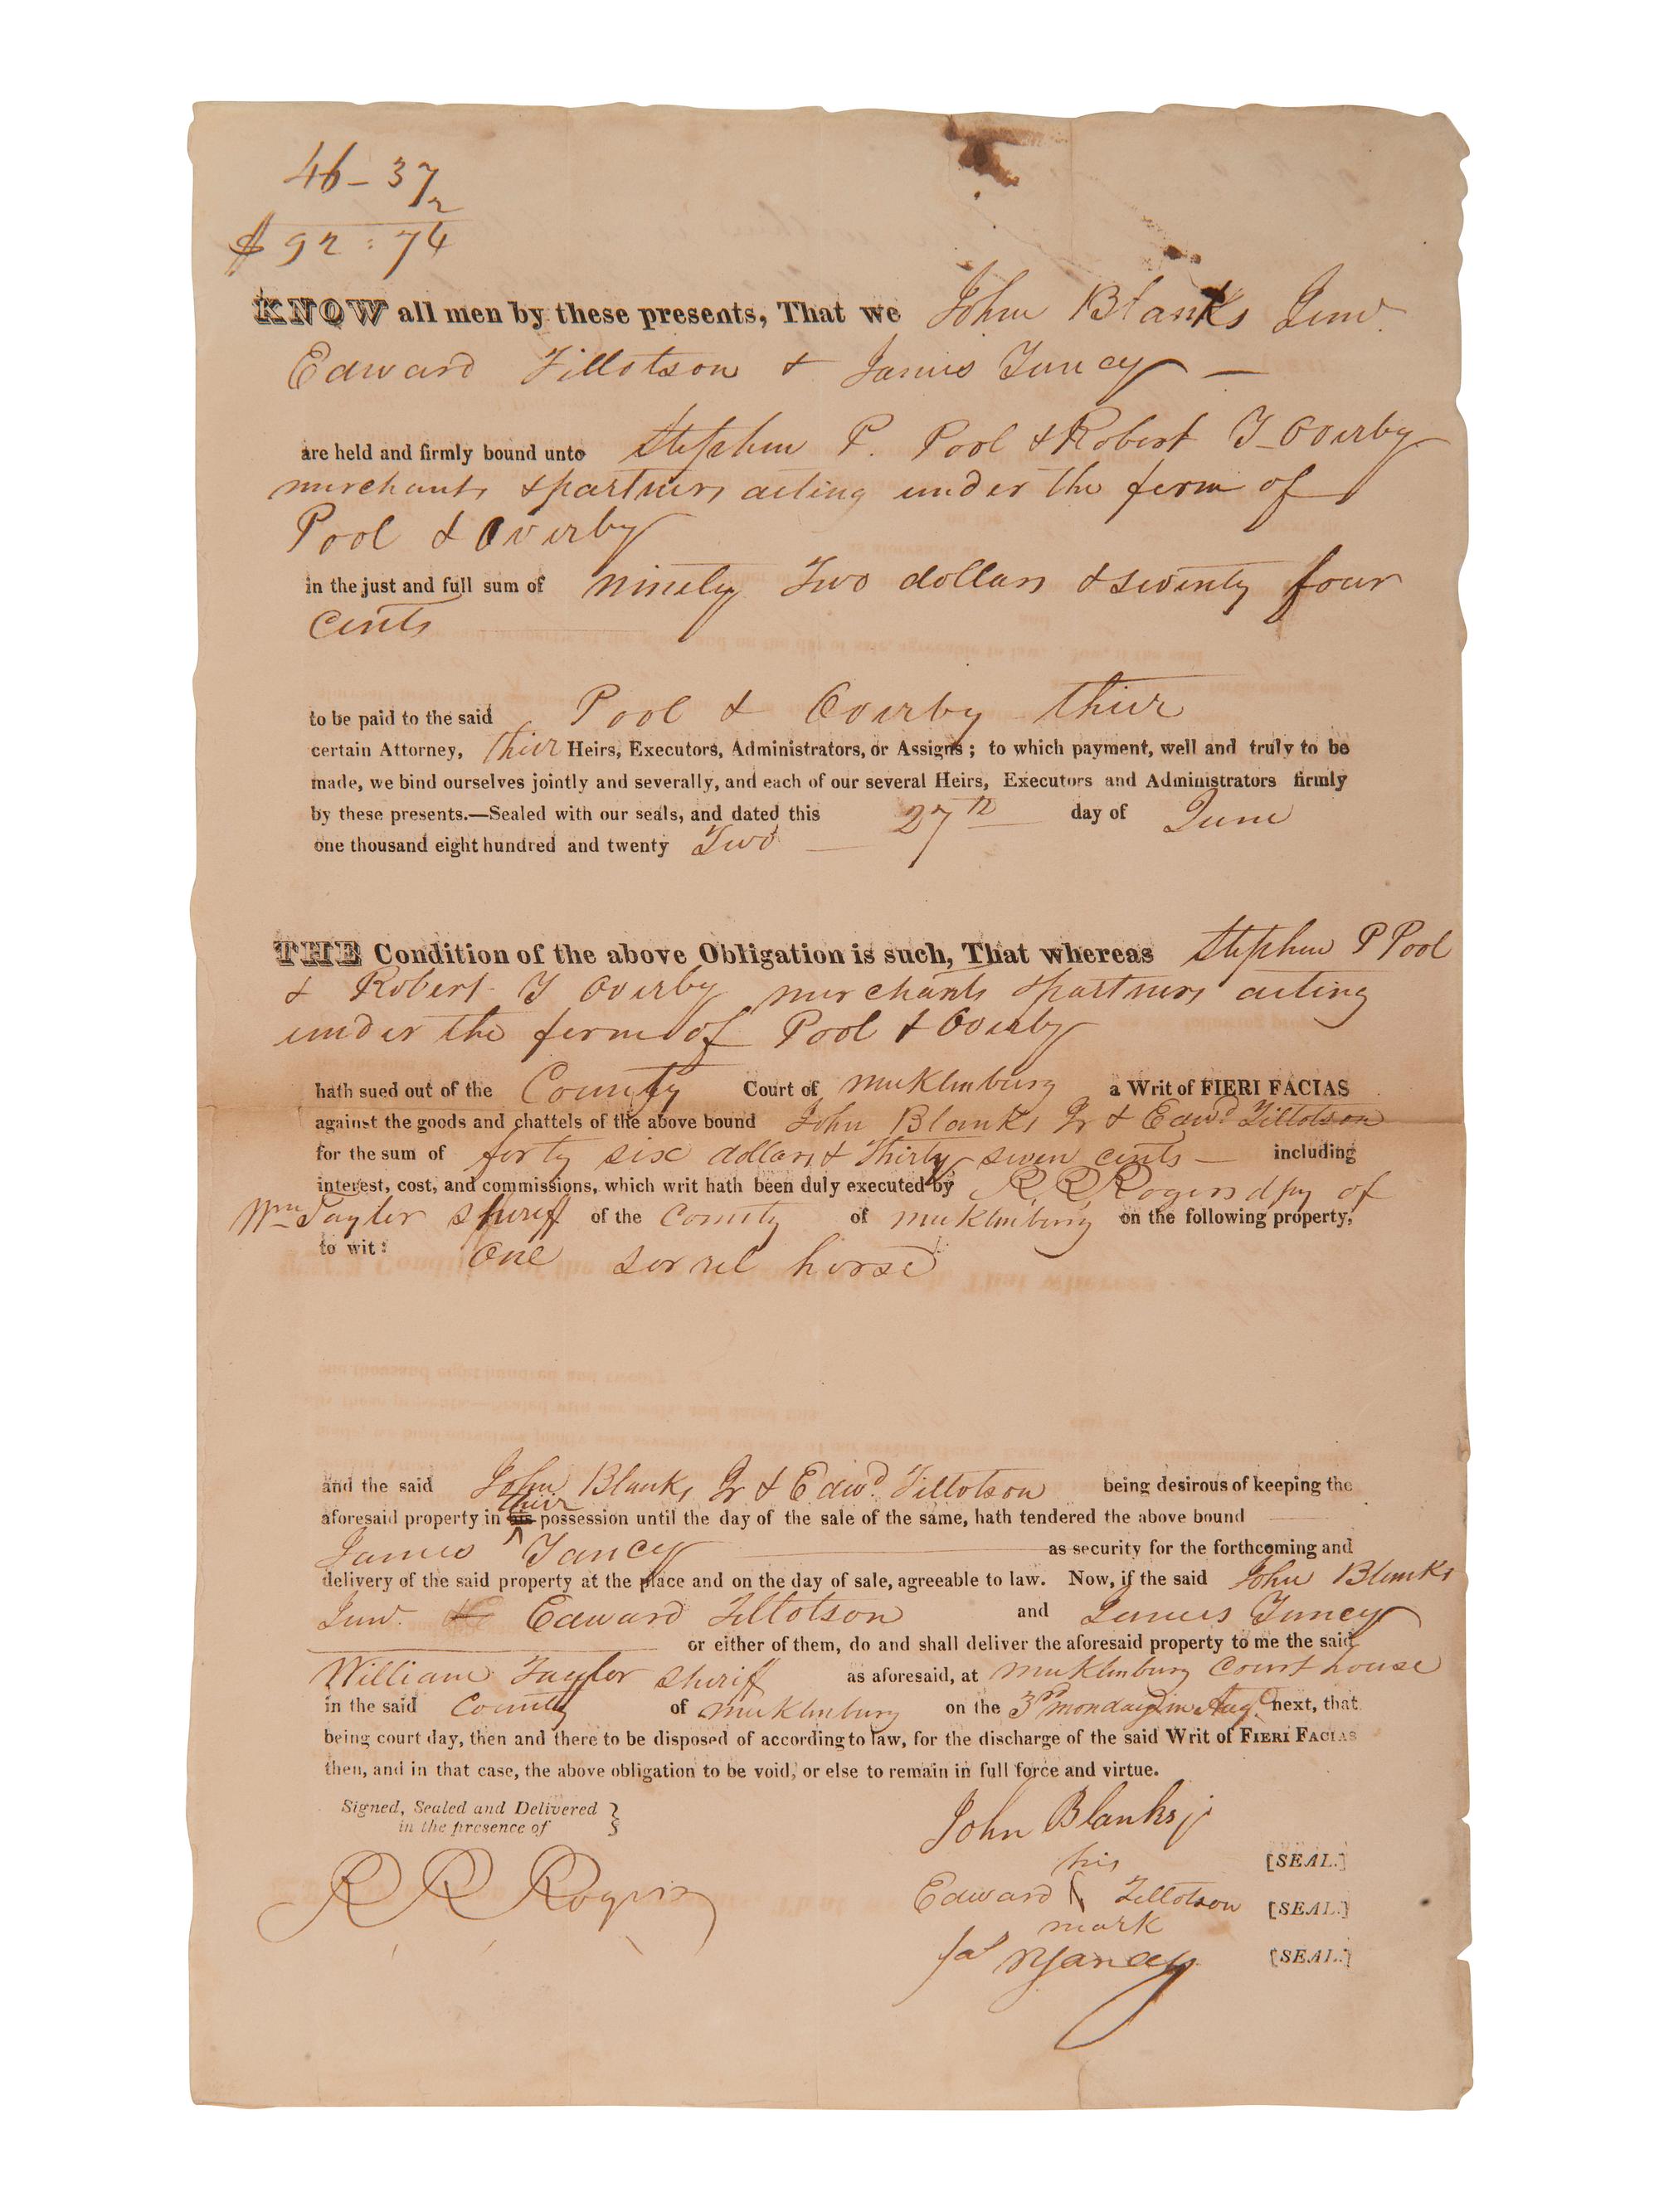 46-37
2
$ 92:74
KNOW all men by these presents, That we John Blanks Junr.
Edward Tillotson & James Yancy —
are held and firmly bound unto Stephen P. Pool & Robert Y Overby
merchants & partners acting under the ferm of
Pool & Overby
in the just and full sum of ninety Two dollars & seventy four
cents
to be paid to the said Pool & Overby thier
certain Attorney, thier Heirs, Executors, Administrators, or Assigns; to which payment, well and truly to be
made, we bind ourselves jointly and severally, and each of our several Heirs, Executors and Administrators firmly
by these presents.—Sealed with our seals, and dated this 27th day of June
one thousand eight hundred and twenty Two —
THE Condition of the above Obligation is such, That whereas Stephen P Pool
& Robert Y Overby merchants & partners acting
under the ferm of Pool & Overby
hath sued out of the County Court of Mecklinburg a Writ of FIERI FACIAS
against the goods and chattels of the above bound John Blanks Jr & Edwd Tillotson
for the sum of forty six dollars & Thirty seven cents — including
interest, cost, and commissions, which writ hath been duly executed by R. R. Rogers dpy of
Wm Taylor Sheriff of the County of Mecklinburg on the following property,
to wit: One sorrel horse
and the said John Blanks Jr & Edwd. Tillotson being desirous of keeping the
thier
aforesaid property in his possession until the day of the sale of the same, hath tendered the above bound
James Yancy as security for the forthcoming and
delivery of the said property at the place and on the day of sale, agreeable to law. Now, if the said John Blanks
Junr. & Edward Tillotson and James Yancy
or either of them, do and shall deliver the aforesaid property to me the said
William Taylor Sheriff as aforesaid, at Mecklinburg Court house
in the said County of Mecklinburg on the 3rd monday in Aug. next, that
being court day, then and there to be disposed of according to law, for the discharge of the said Writ of FIERI FACIAS
then, and in that case, the above obligation to be void, or else to remain in full force and virtue.
Signed, Sealed and Delivered }
in the presence of
R R Rogers
John Blanks jr [SEAL.]
his
Edward Tillotson [SEAL.]
mark
Jas Yancey [SEAL.]